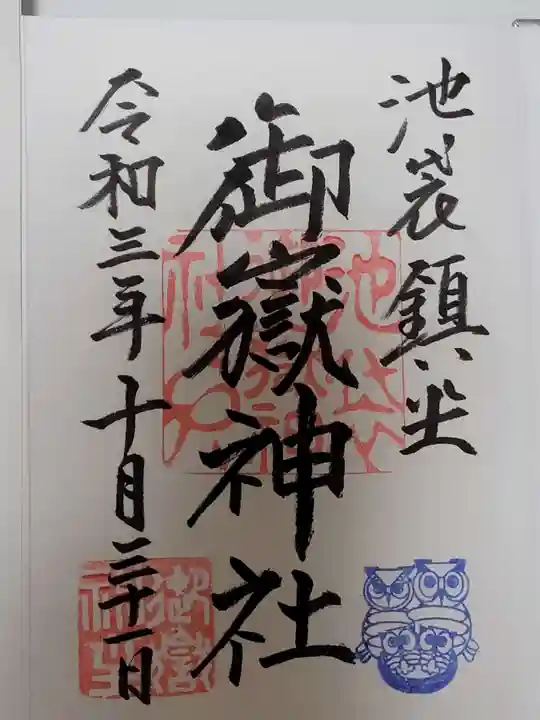 池袋鎮坐
御嶽神社
令和三年十月三十一日